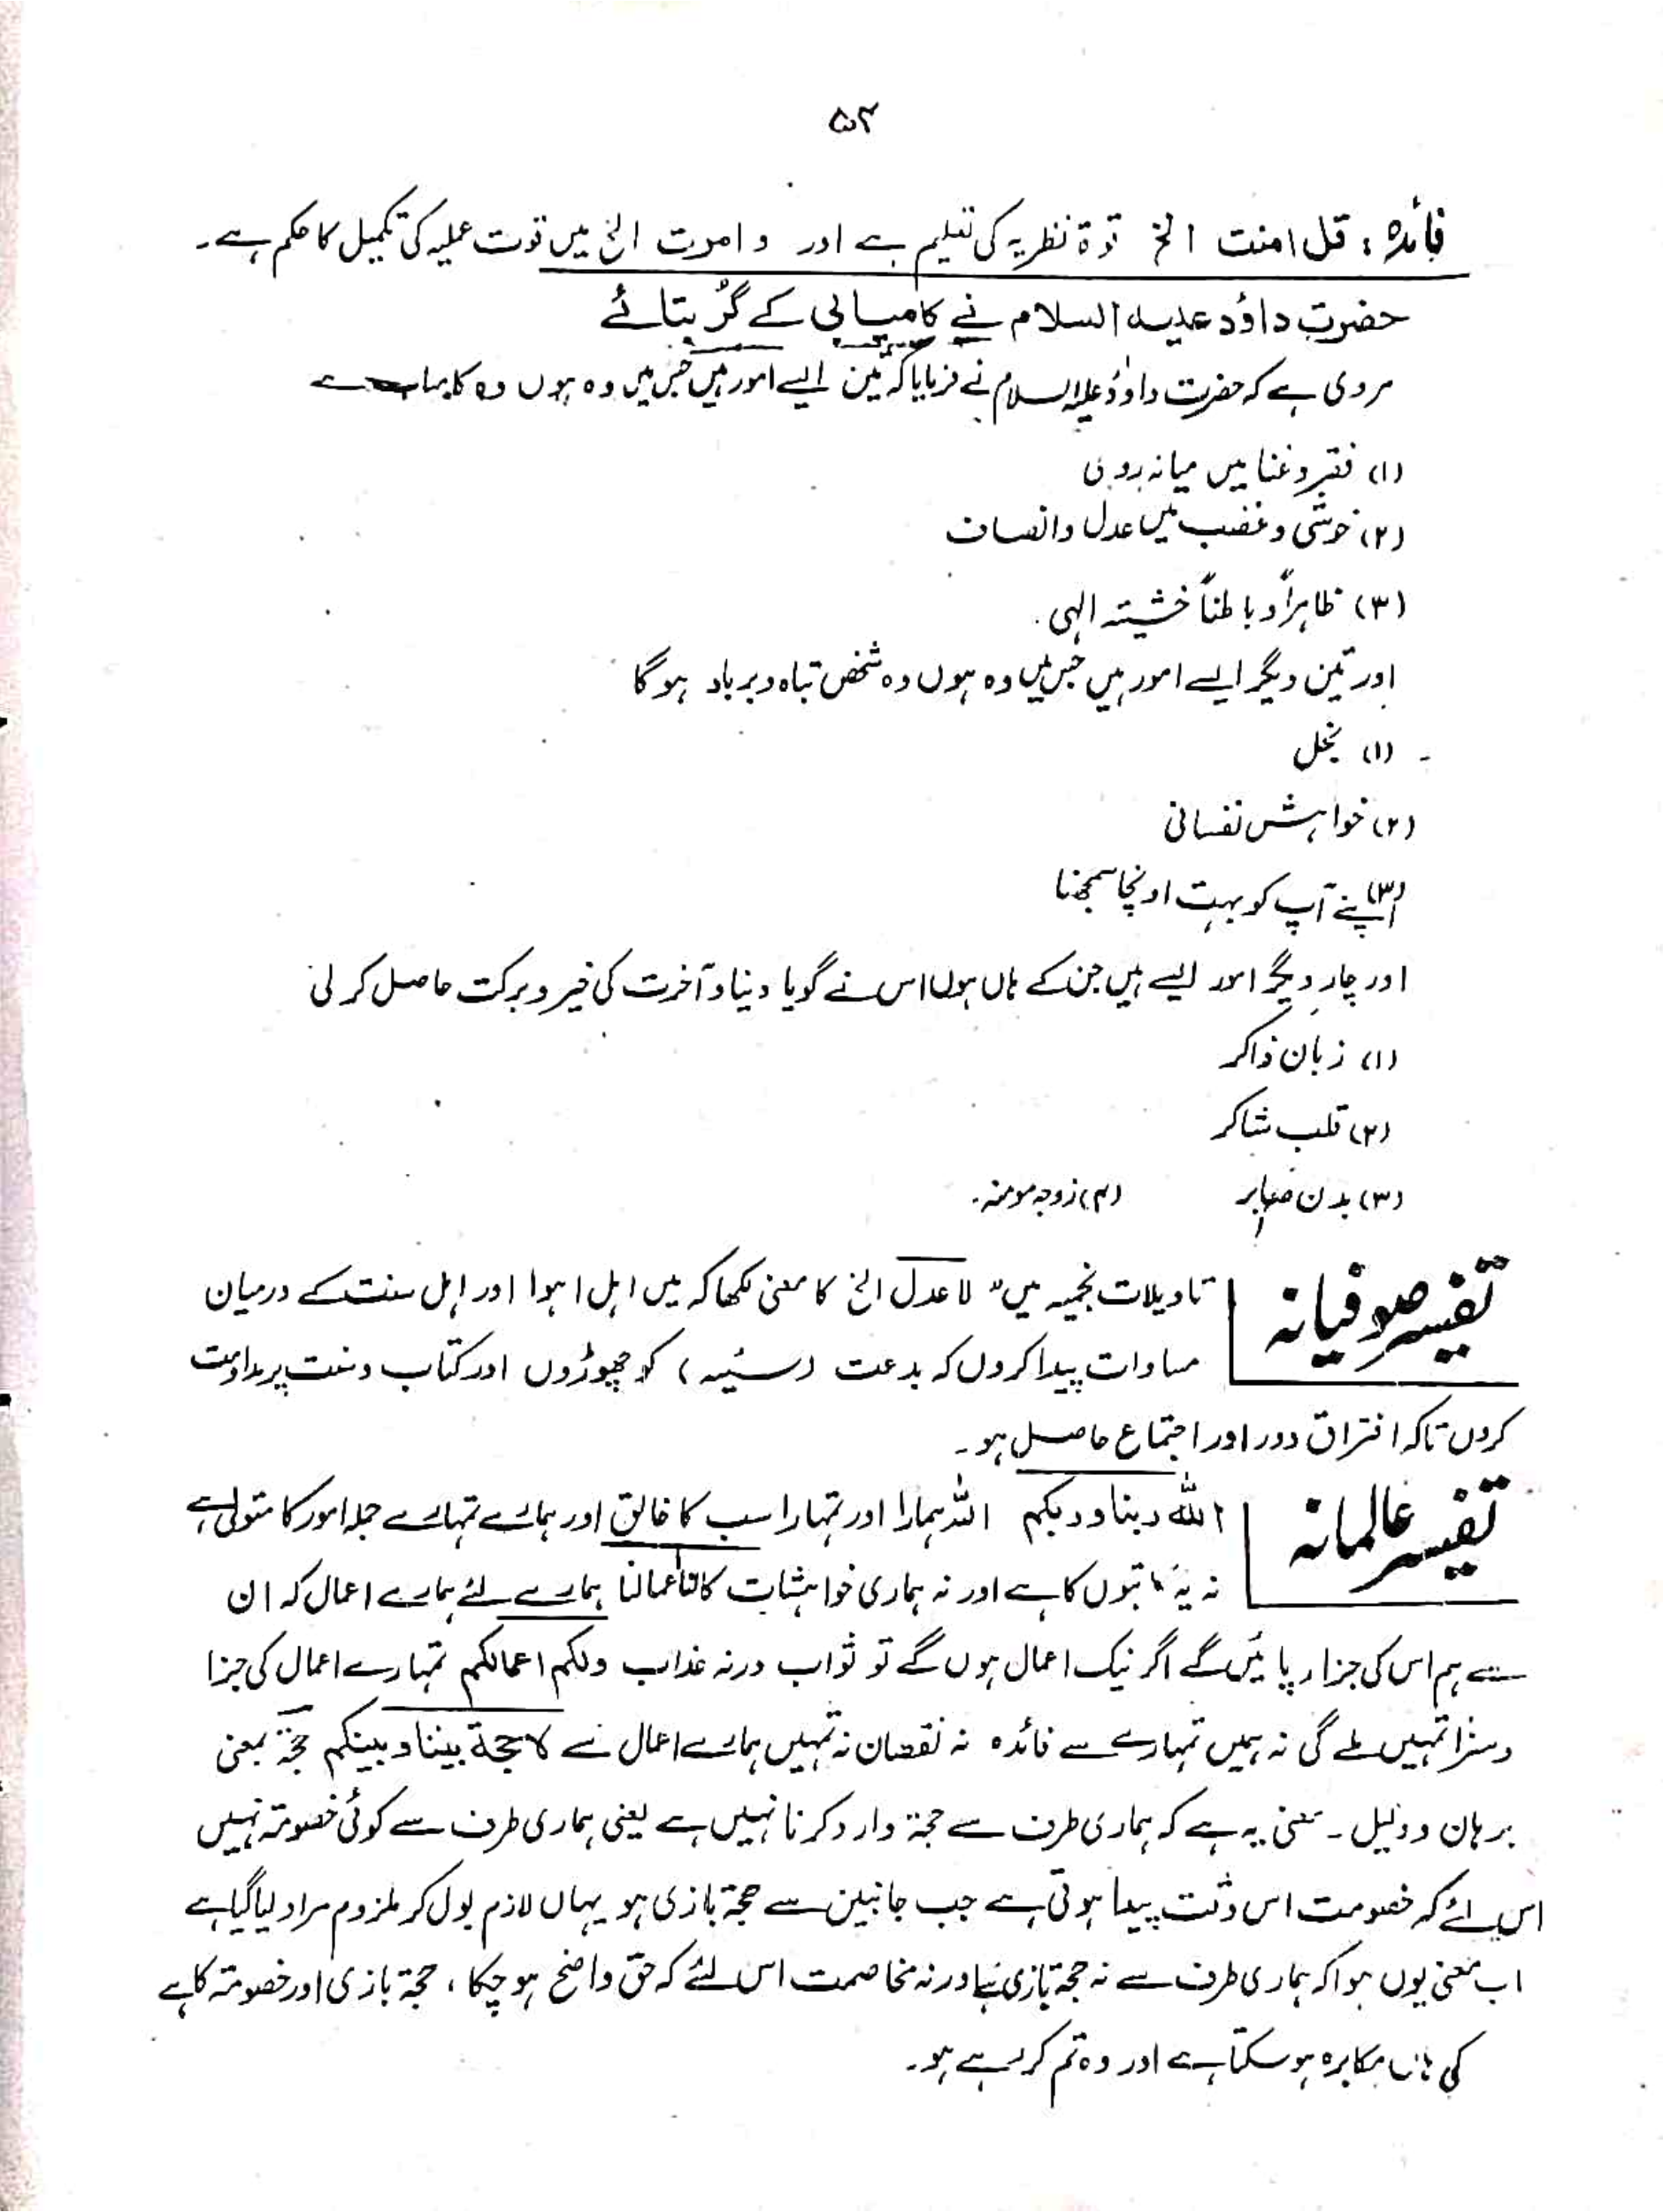 ۵۲
فائدہ : قل امنت الخ قوۃ نظریہ کی تعلیم ہے اور و امرت الخ میں قوت عملیہ کی تکمیل کا حکم ہے۔
حضرت داؤد علیہ السلام نے کامیابی کے گُر بتائے
مروی ہے کہ حضرت داؤد علیہ السلام نے فرمایا کہ تین ایسے امور ہیں جس میں وہ ہوں وہ کامیاب ہے
(۱) فقر و غنا میں میانہ روی
(۲) خوشی و غضب میں عدل و انصاف
(۳) ظاہراً و باطناً خشیتہ الہی۔
اور تین دیگر ایسے امور ہیں جس میں وہ ہوں وہ شخص تباہ و برباد ہوگا
(۱) بخل
(۲) خواہش نفسانی
(۳) اپنے آپ کو بہت اونچا سمجھنا
اور چار دیگر امور ایسے ہیں جن کے ہاں ہوں اس نے گویا دنیا و آخرت کی خیر و برکت حاصل کر لی
(۱) زبان ذاکر
(۲) قلب شاکر
(۳) بدن صابر (۴) زوجہ مومنہ۔
تفسیر صوفیانہ تاویلات نجمیہ میں " لا عدل الخ کا معنی لکھا کہ میں اہل اہوا اور اہل سنت کے درمیان
مساوات پیدا کروں کہ بدعت (سئیہ) کو چھوڑوں اور کتاب و سنت پر مداومت
کروں تاکہ افتراق دور اور اجتماع حاصل ہو۔
تفسیر عالمانہ اللہ ربنا و ربکم اللہ ہمارا اور تمہارا سب کا خالق اور ہمارے تمہارے جملہ امور کا متولی ہے
نہ یہ بتوں کا ہے اور نہ ہماری خواہشات کا لنا اعمالنا ہمارے لئے ہمارے اعمال کہ ان
سے ہم اس کی جزا پائیں گے اگر نیک اعمال ہوں گے تو ثواب ورنہ عذاب ولکم اعمالکم تمہارے اعمال کی جزا
و سزا تمہیں ملے گی نہ ہمیں تمہارے سے فائدہ نہ نقصان نہ تمہیں ہمارے اعمال سے لا حجۃ بیننا و بینکم حجۃ بمعنی
برہان و دلیل۔ معنی یہ ہے کہ ہماری طرف سے حجۃ وارد کرنا نہیں ہے یعنی ہماری طرف سے کوئی خصومتہ نہیں
اس لئے کہ خصومت اس وقت پیدا ہوتی ہے جب جانبین سے حجۃ بازی ہو یہاں لازم بول کر ملزوم مراد لیا گیا ہے
اب معنی یوں ہوا کہ ہماری طرف سے نہ حجۃ بازی ہے اور نہ مخاصمت اس لئے کہ حق واضح ہو چکا ، حجۃ بازی اور خصومتہ کا ہے
کی ہاں مکابرہ ہو سکتا ہے اور وہ تم کر رہے ہو۔